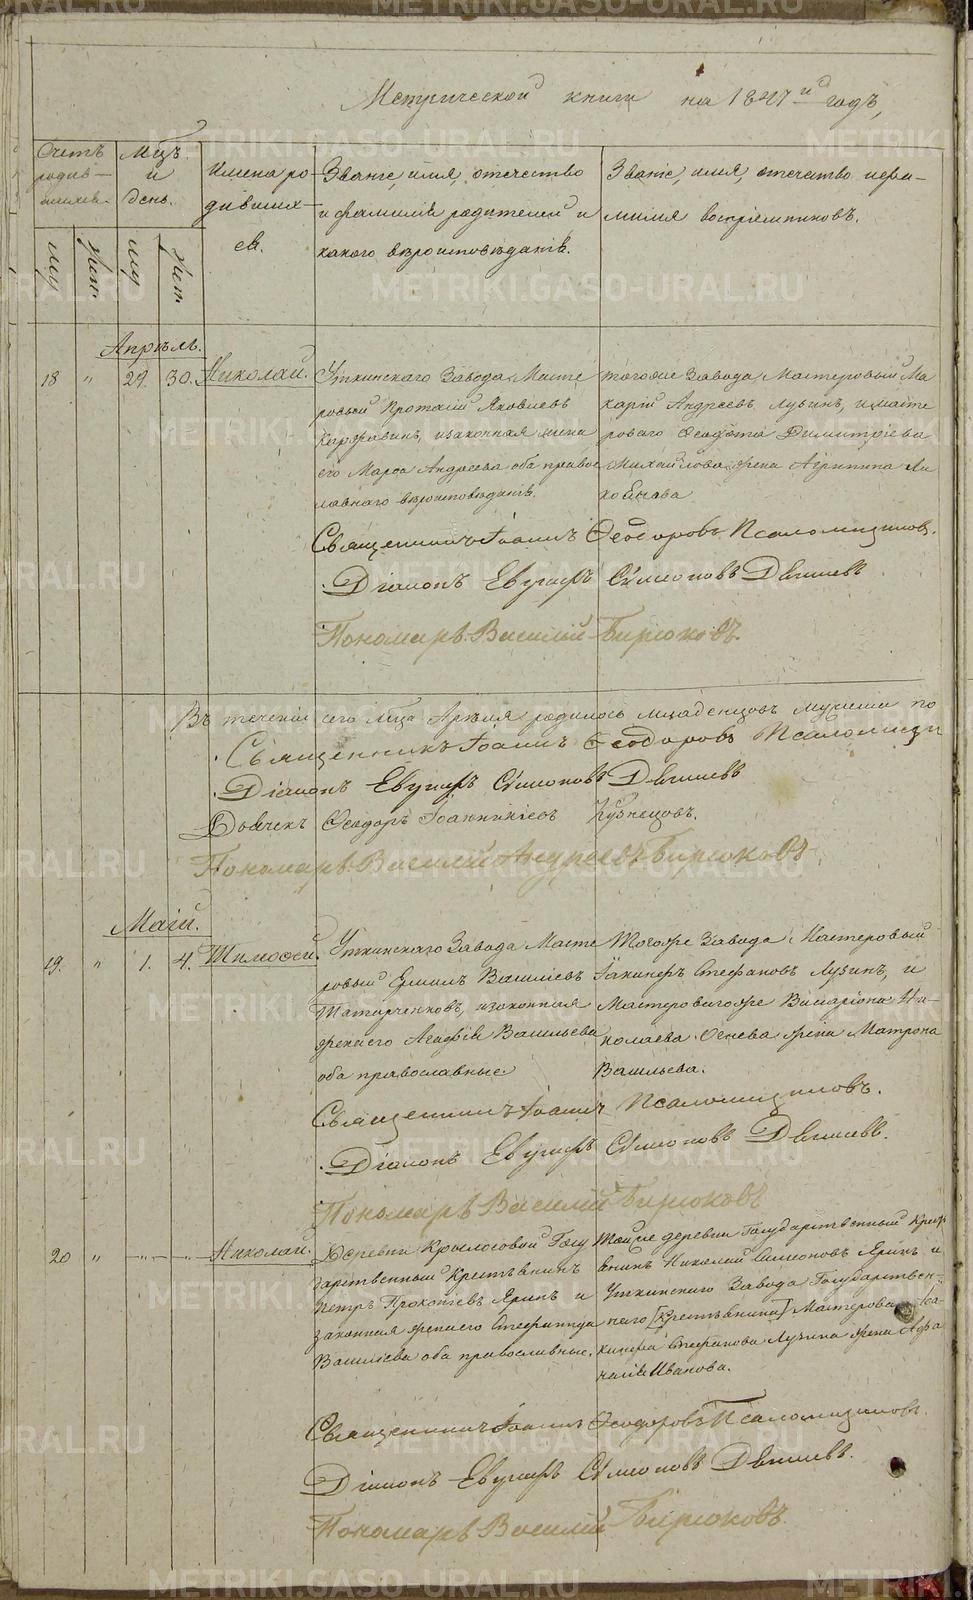 Метрической книги на 1847й годъ,
Счетъ родив-шихся.
Мцъ и день.
Имена ро-
дивших-
ся.
Званіе, имя, отчество
и фамилія родителей и
какого вѣроисповѣданія.
Званіе, имя, отчество и фа-
милія воспріемниковъ.
муж. жен. рож. крещ.
Апрѣль.
18 " 29. 30. Николай.
Уткинскаго Завода Масте
ровый Яковлевъ
изаконная жена
его Марѳа Андреева оба право
славнаго вѣроисповѣданія.
тогоже Завода Мастеровый Ма
карій Андреевъ Лузинъ, и масте
роваго Ѳеодота Димитріева
Михайлова жена Агрипина Яко
влева
Священникъ Іоаннъ Ѳеодоровъ Псаломщиковъ.
Діаконъ Евгенъ Симеоновъ
Пономарь Василій Бирюковъ.
Въ теченіи сего Мца Апрѣля родилось младенцовъ мужеска по
Священникъ Іоаннъ Ѳеодоровъ Псаломщи
Діаконъ Симеоновъ
Дьячекъ Ѳеодоръ Іоанникіевъ Кузнецовъ.
Пономарь Василій Андреевъ Бирюковъ
Маій.
19. " 1. 4. Тимоѳей.
Уткинскаго Завода Масте
ровый Ермилъ Василіевъ
Татарченковъ, изаконная
жена его Агафія Васильева
оба православные
Тогоже Завода Мастеровый
Іакинфъ Стефановъ Лузинъ, и
Мастероваго же Иларіона Ни-
колаева жена Матрона
Васильева.
Священникъ Іоаннъ Псаломщиковъ.
Діаконъ Симеоновъ
Пономарь Василій Бирюковъ
20 " Николай.
Деревни Крылосовой Госу
дарственный Крестьянинъ
Петръ Прокопіевъ Яринъ и
законная жена его Стефанида
Василіева оба православные.
Тойже деревни Государственный Крест
янинъ Николай Симеоновъ Яринъ и
Уткинского Завода Государствен-
наго [Крестьянина] Мастерова Іа
кинфа Стефанова Лузина жена Афа
насія Иванова.
Священникъ Іоаннъ Ѳеодоровъ Псаломщиковъ.
Діаконъ Симеоновъ
Пономарь Василій Бирюковъ.
METRIKI.GASO-URAL.RU